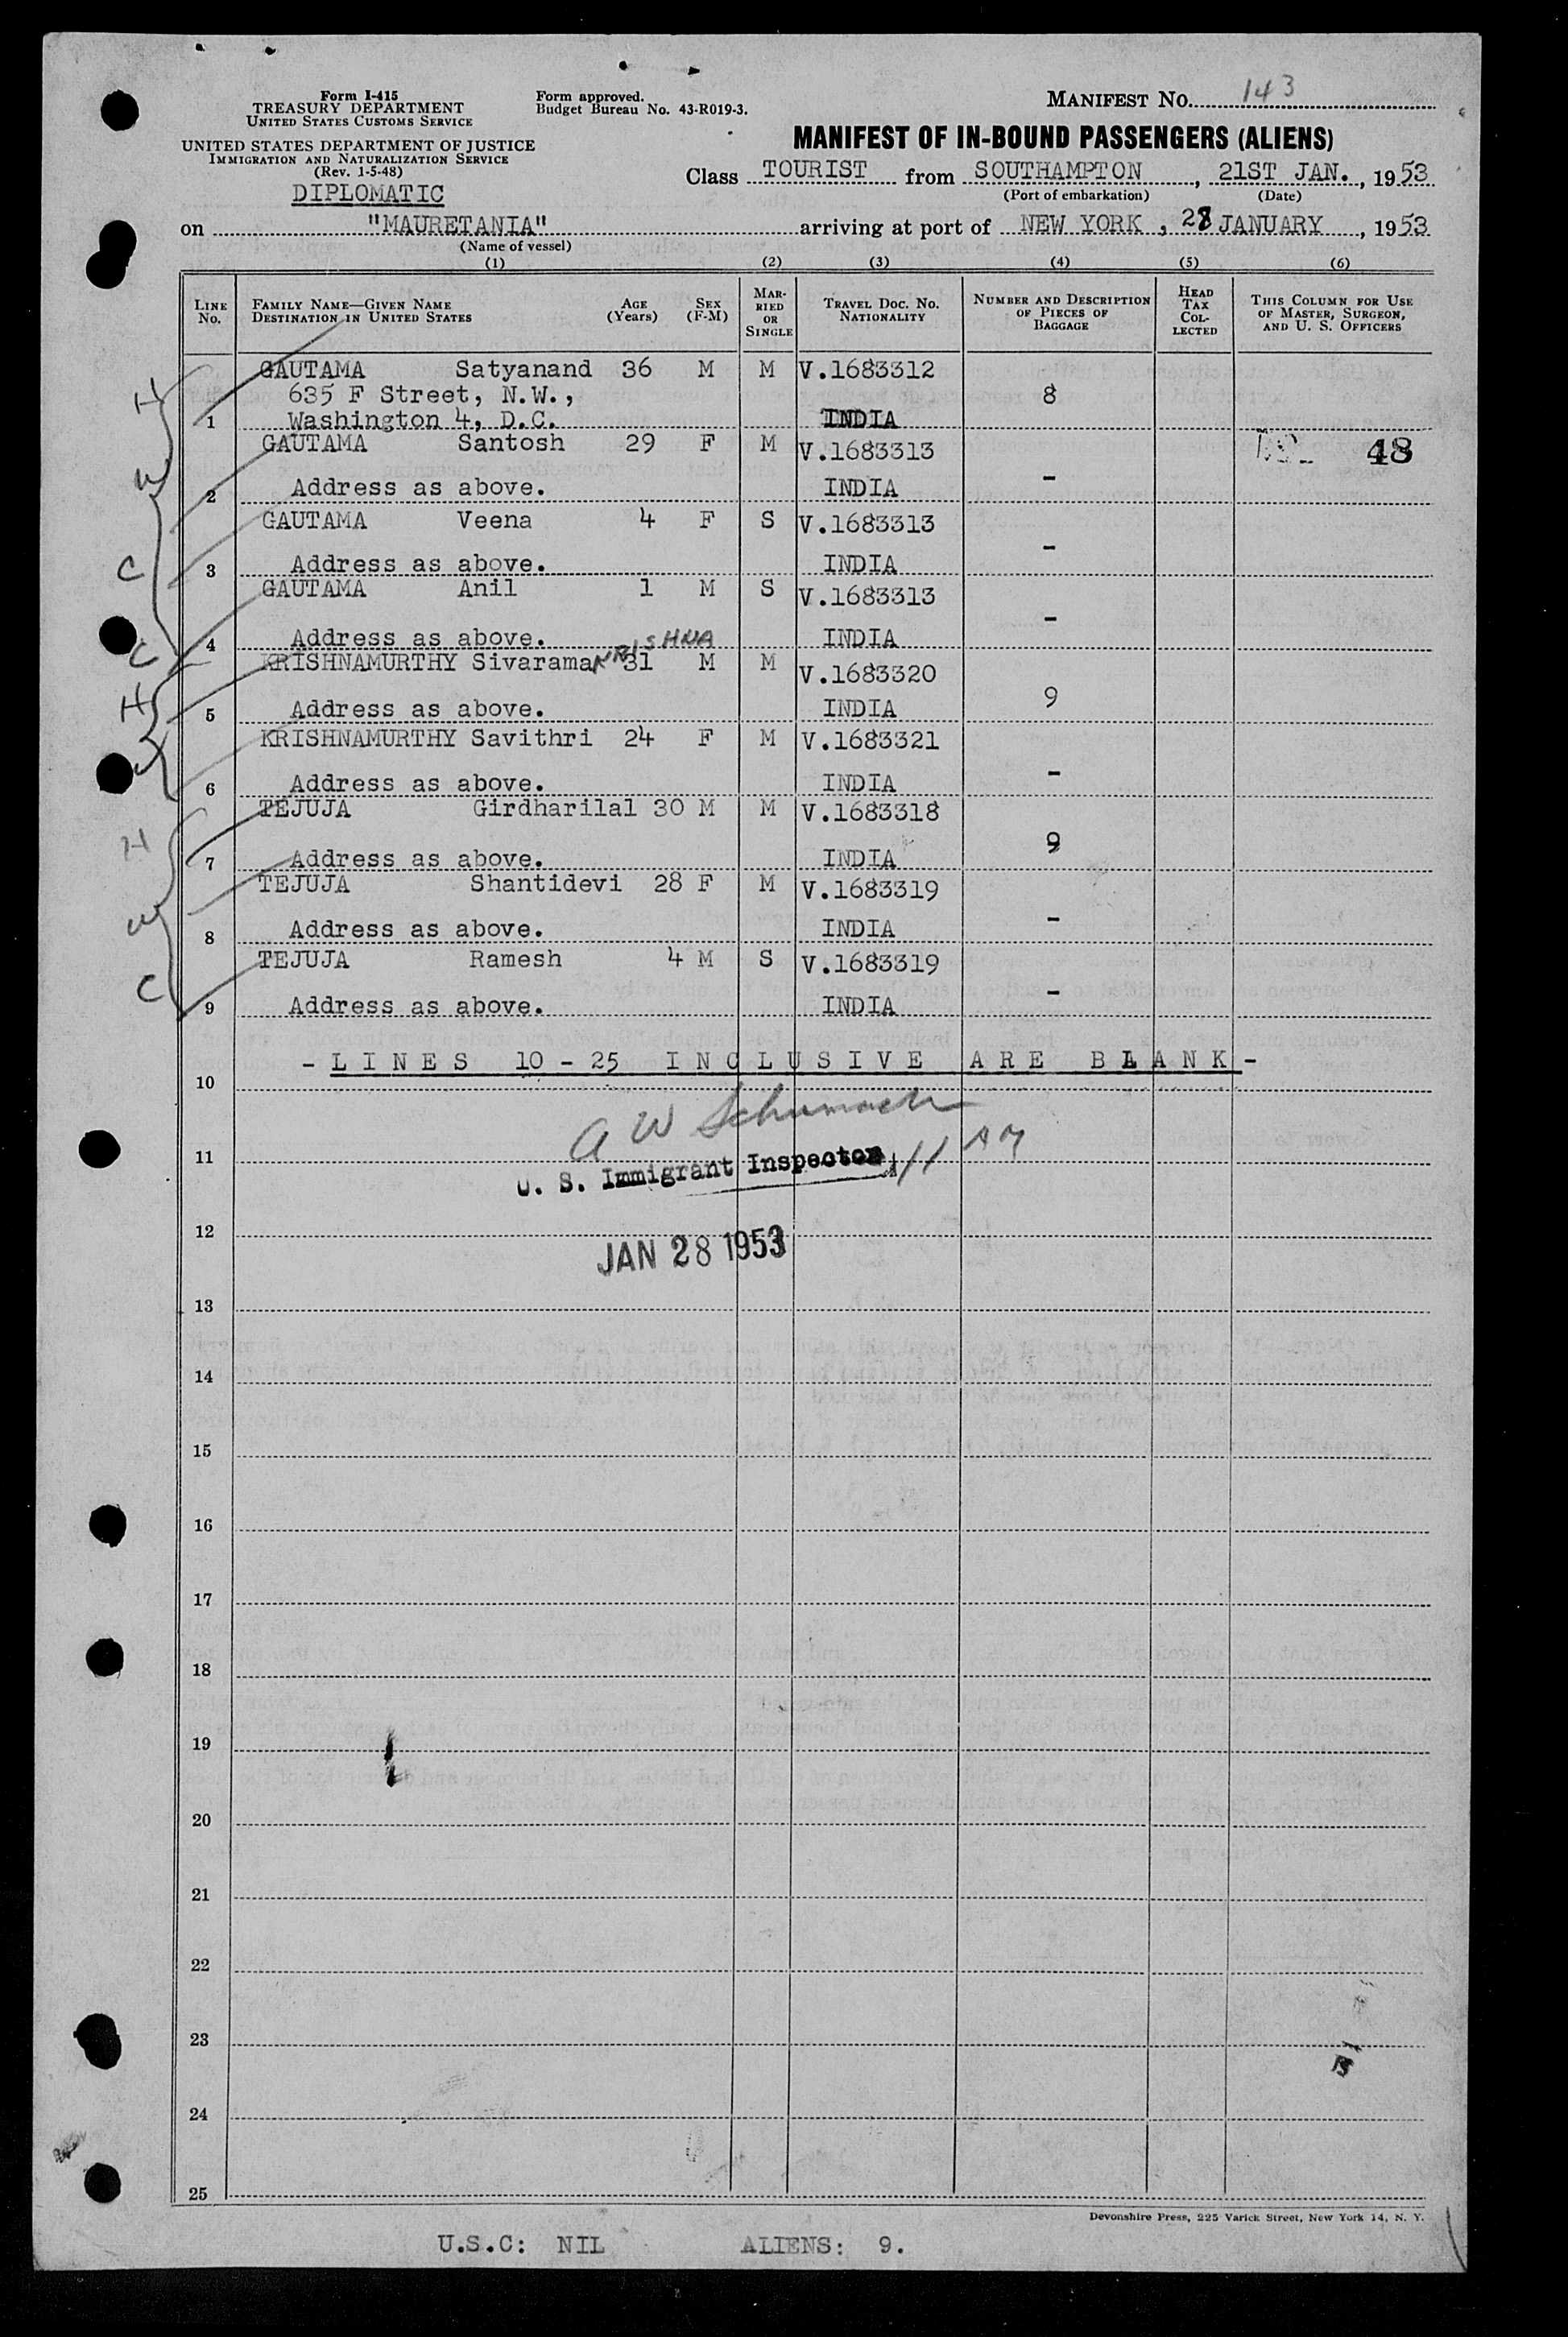 Form I-415
TREASURY DEPARTMENT
UNITED STATES CUSTOMS SERVICE
UNITED STATES DEPARTMENT OF JUSTICE
IMMIGRATION AND NATURALIZATION SERVICE
(Rev. 1-5-48)
DIPLOMATIC
Form approved.
Budget Bureau No. 43-R019-3.
MANIFEST NO. 143
MANIFEST OF IN-BOUND PASSENGERS (ALIENS)
Class TOURIST from SOUTHAMPTON, 21ST JAN., 1953
(Port of embarkation) (Date)
on "MAURETANIA" arriving at port of NEW YORK, 28 JANUARY, 1953
(Name of vessel)
(1) (2) (3) (4) (5) (6)
LINE NO. FAMILY NAME—GIVEN NAME DESTINATION IN UNITED STATES AGE (Years) SEX (F-M) MARRIED OR SINGLE TRAVEL DOC. NO. NATIONALITY NUMBER AND DESCRIPTION OF PIECES OF BAGGAGE HEAD TAX COLLECTED THIS COLUMN FOR USE OF MASTER, SURGEON, AND U. S. OFFICERS
GAUTAMA Satyanand 36 M M V.1683312
H 635 F Street, N.W., 8
1 Washington 4, D.C. INDIA
GAUTAMA Santosh 29 F M V.1683313 48
W 2 Address as above. INDIA -
GAUTAMA Veena 4 F S V.1683313
C 3 Address as above. INDIA -
GAUTAMA Anil 1 M S V.1683313
C 4 Address as above. INDIA -
KRISHNA
KRISHNAMURTHY Sivarama 31 M M V.1683320
H 5 Address as above. INDIA 9
KRISHNAMURTHY Savithri 24 F M V.1683321
W 6 Address as above. INDIA -
TEJUJA Girdharilal 30 M M V.1683318
H 7 Address as above. INDIA 9
TEJUJA Shantidevi 28 F M V.1683319
W 8 Address as above. INDIA -
TEJUJA Ramesh 4 M S V.1683319
C 9 Address as above. INDIA -
- LINES 10 - 25 INCLUSIVE ARE BLANK -
10
A W Schumach
11 U. S. Immigrant Inspector 11 AM
12
JAN 28 1953
13
14
15
16
17
18
19
20
21
22
23
24
25
Devonshire Press, 225 Varick Street, New York 14, N. Y.
U.S.C: NIL ALIENS: 9.